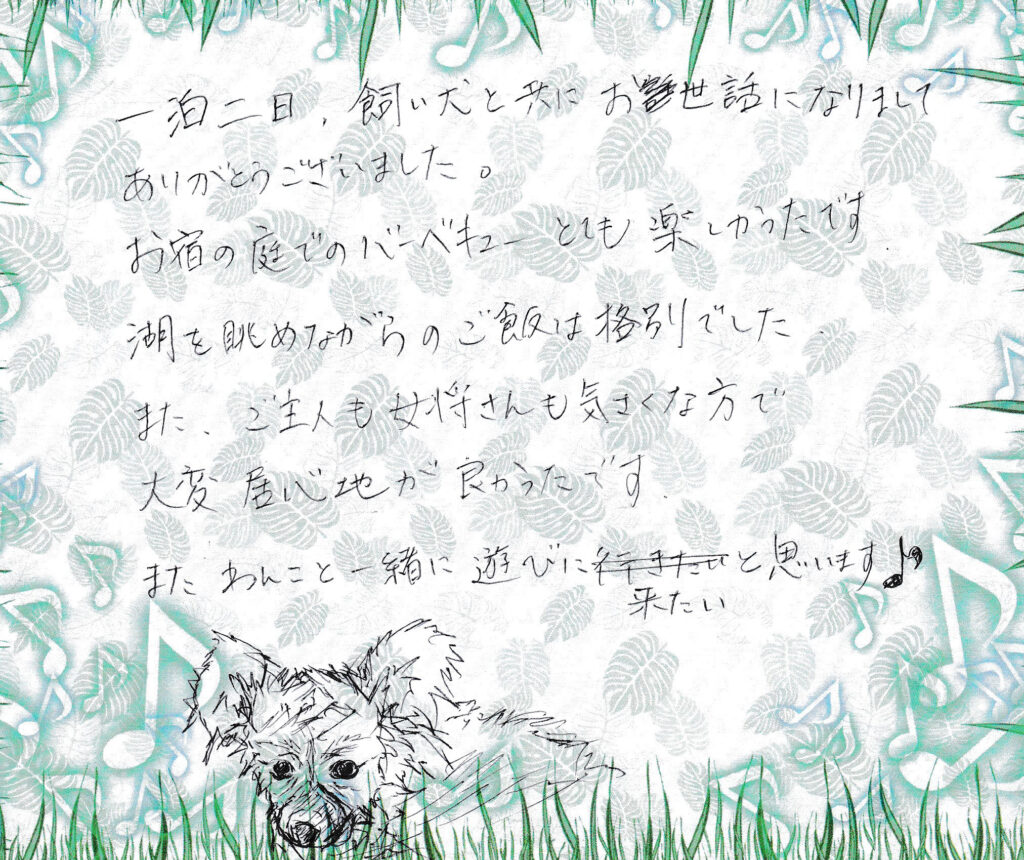 一泊二日、飼い犬と共に お世話になりまして
ありがとうございました。
お宿の庭でのバーベキューとても楽しかったです.
湖を眺めながらのご飯は格別でした.
また、ご主人も女将さんも気さくな方で
大変居心地が良かったです.
また わんこと一緒に遊びに行きたいと思います♪
来たい